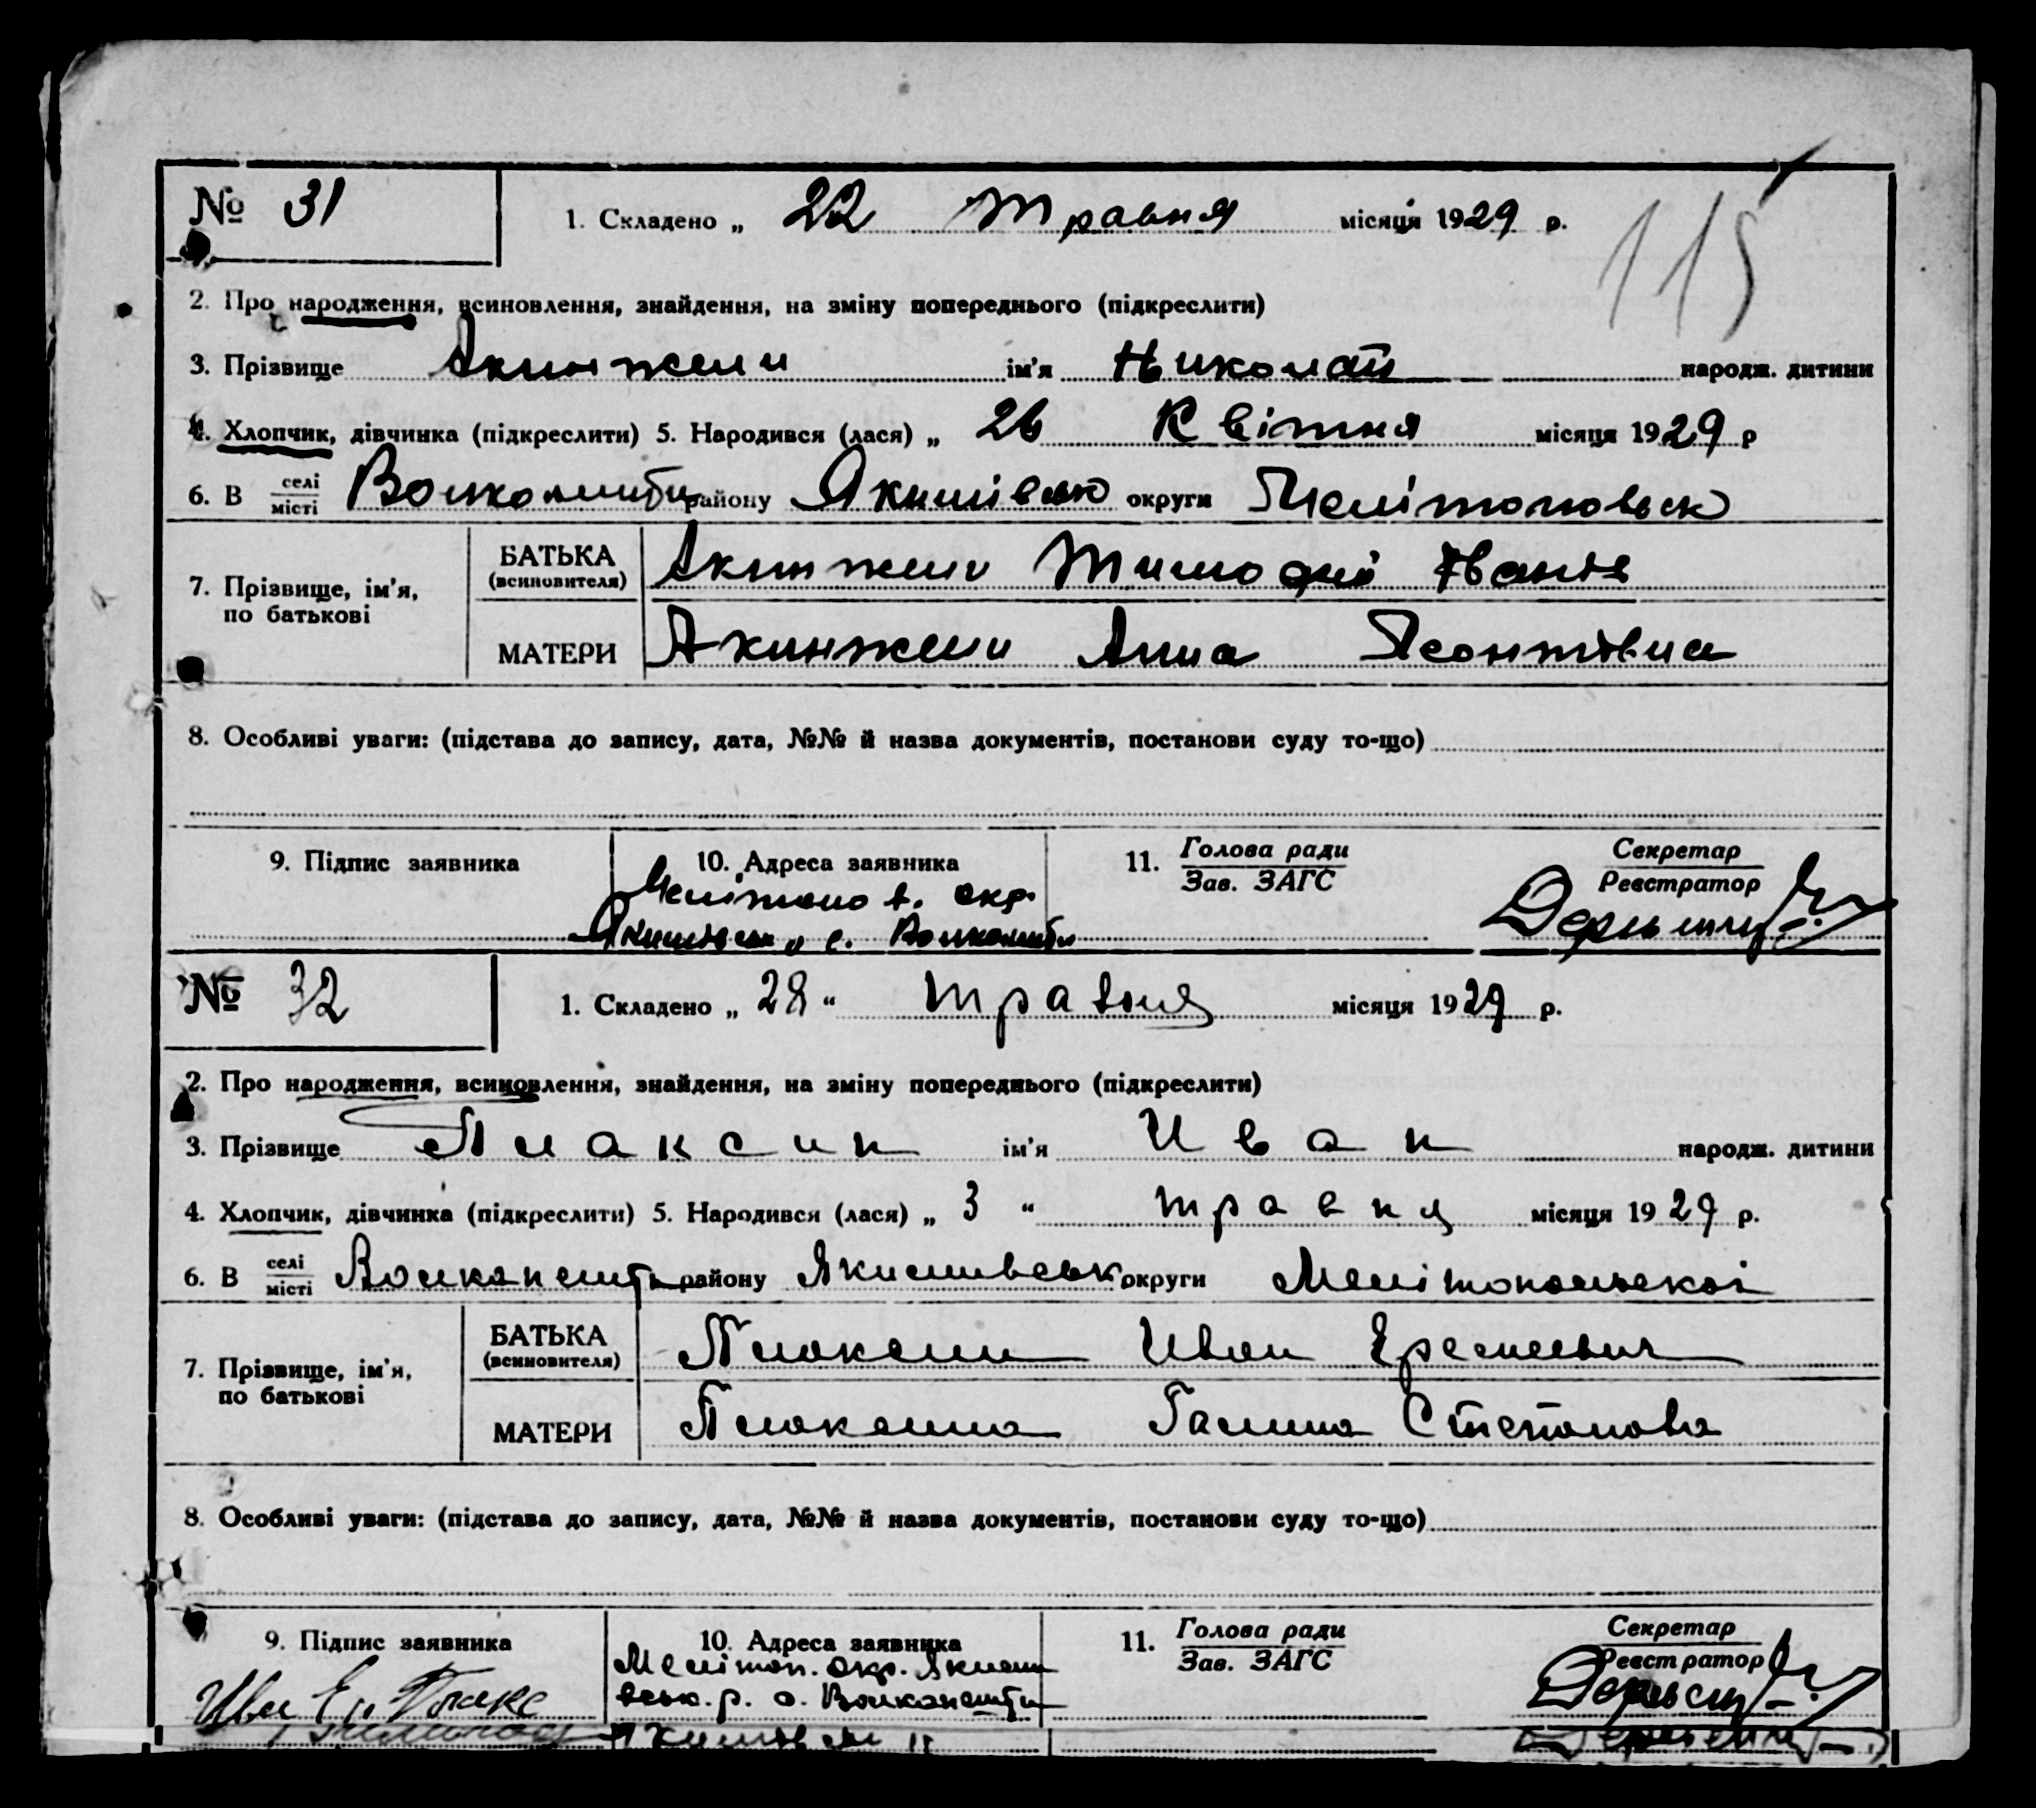 № 31
1. Складено „ 22 Травня місяця 1929 р.
115
2. Про народження, всиновлення, знайдення, на зміну попереднього (підкреслити)
3. Прізвище Акинжели ім'я Николай народж. дитини
4. Хлопчик, дівчинка (підкреслити) 5. Народився (лася) „ 26 Квітня місяця 1929 р
6. В селі/місті району округи
7. Прізвище, ім'я, по батькові
БАТЬКА (всиновителя) Акинжели
МАТЕРИ Акинжели Анна
8. Особливі уваги: (підстава до запису, дата, №№ й назва документів, постанови суду то-що)
9. Підпис заявника 10. Адреса заявника 11. Голова ради Секретар
Зав. ЗАГС Реєстратор
окр.
с.
№ 32
1. Складено „ 28 “ травня місяця 1929 р.
2. Про народження, всиновлення, знайдення, на зміну попереднього (підкреслити)
3. Прізвище Плаксин ім'я Иван народж. дитини
4. Хлопчик, дівчинка (підкреслити) 5. Народився (лася) „ 3 “ травня місяця 1929 р.
6. В селі/місті Волканешти району округи Мелітопольскоі
7. Прізвище, ім'я, по батькові
БАТЬКА (всиновителя) Плаксин Иван
МАТЕРИ Плаксина Галина Степанова
8. Особливі уваги: (підстава до запису, дата, №№ й назва документів, постанови суду то-що)
9. Підпис заявника 10. Адреса заявника 11. Голова ради Секретар
Зав. ЗАГС Реєстратор
Меліт​оп. окр.
р. с. Волканешти